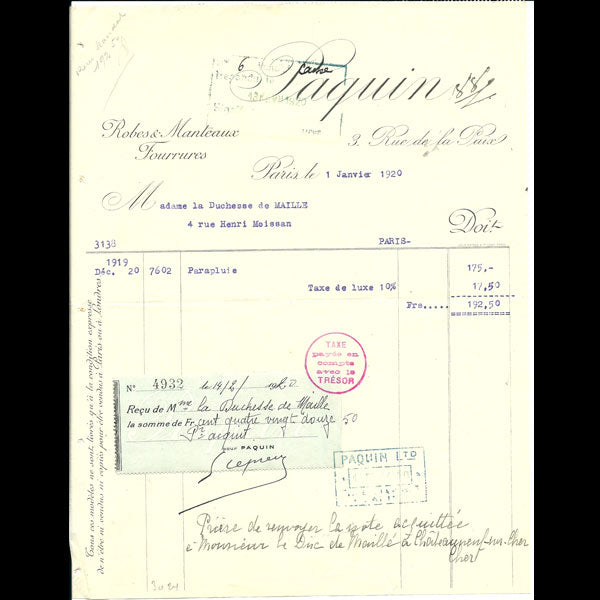 192.50
6
Caisse
Paquin
Robes & Manteaux
Fourrures
3, Rue de la Paix
Paris, le 1 Janvier 1920
Madame la Duchesse de MAILLE
4 rue Henri Moissan
Doit
3138
PARIS-
1919
Déc. 20 7602 Parapluie 175,-
Taxe de luxe 10% 17,50
Frs..... 192,50
TAXE
payée en
compte
avec le
TRÉSOR
N° 4932 le 14/2/ 1920
Reçu de Mme la Duchesse de Maille
la somme de Fr cent quatre vingt douze 50
Pr acquit
POUR PAQUIN
PAQUIN LTD
Prière de renvoyer la note acquittée
à Monsieur le Duc de Maillé à Châteauneuf-sur-Cher
Cher
Tous ces modèles ne sont livrés qu'à la condition expresse
de n'être ni vendus ni copiés pour être vendus à Paris ou à Londres